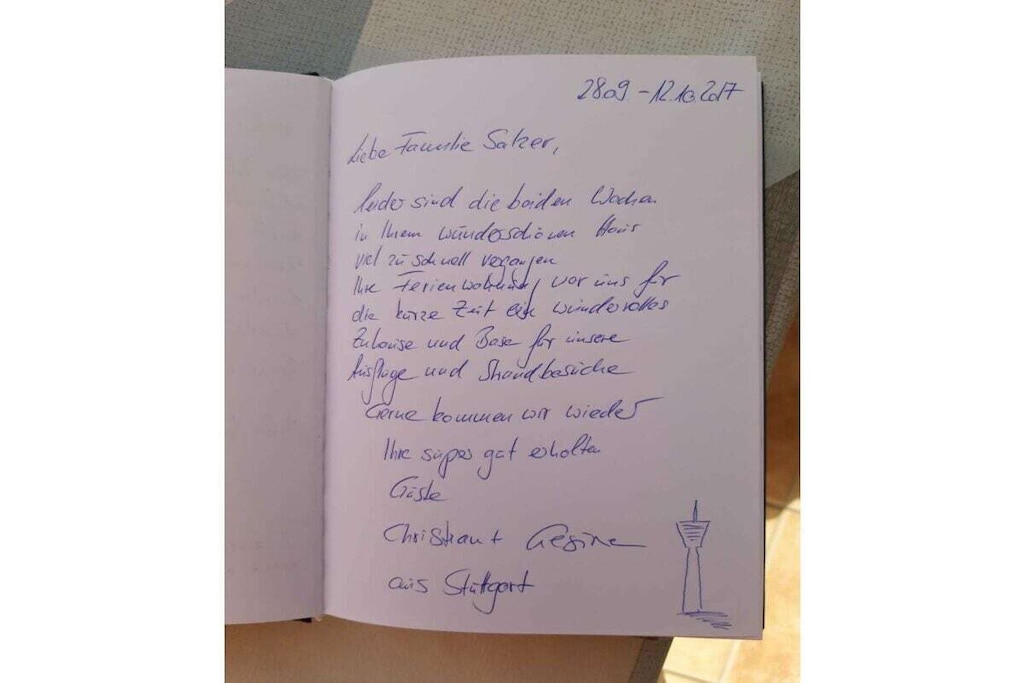 28.09 - 12.10.2017
Liebe Familie Salzer,
leider sind die beiden Wochen
in Ihrem wunderschönen Haus
viel zu schnell vergangen
Ihre Ferienwohnung war uns für
die kurze Zeit ein wundervolles
Zuhause und Base für unsere
Ausflüge und Strandbesuche
Gerne kommen wir wieder
Ihre super gut erholten
Gäste
Christian + Gesine
aus Stuttgart